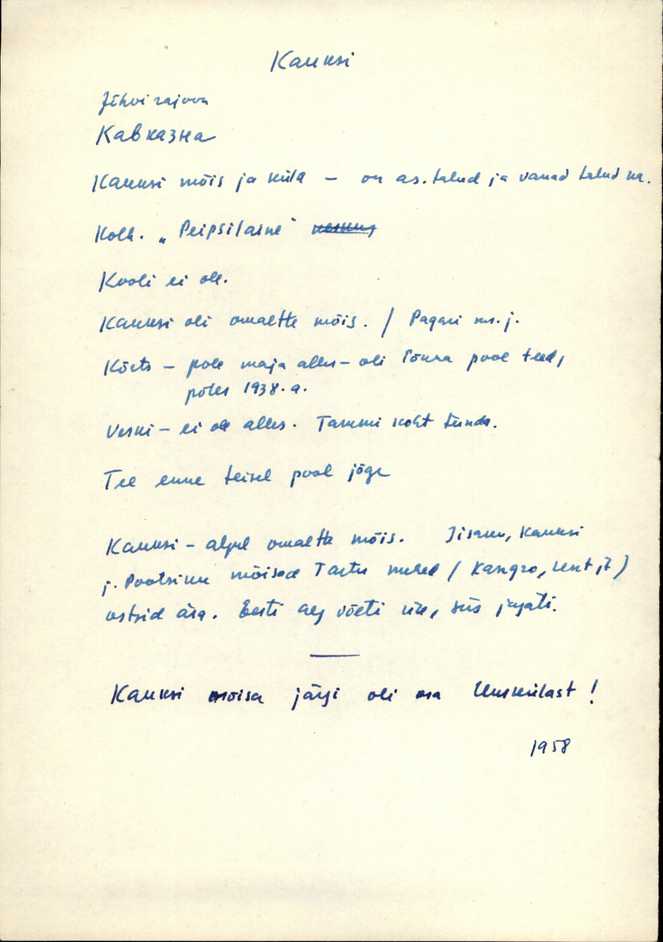 Kauksi
Jõhvi rajoon
Кавказна
Kauksi mõis ja küla – on as. talud ja vanad talud ka.
Kolh. „Peipsilaine"
Kooli ei ole.
Kauksi oli omaette mõis. / Pagari
Kõrts – pole maja alles – oli lõuna pool teed,
põles 1938. a.
Veski – ei ole alles. Tammi koht tunda.
Tee enne teisel pool jõge
Kauksi – algul omaette mõis. Iisaku, Kauksi
j. Pootsiku mõisad Tartu mehed / Kangro, Lent jt )
ostsid ära. Eesti aeg võeti üle, siis jagati.
Kauksi moisa järgi oli osa Uuskülast !
1958